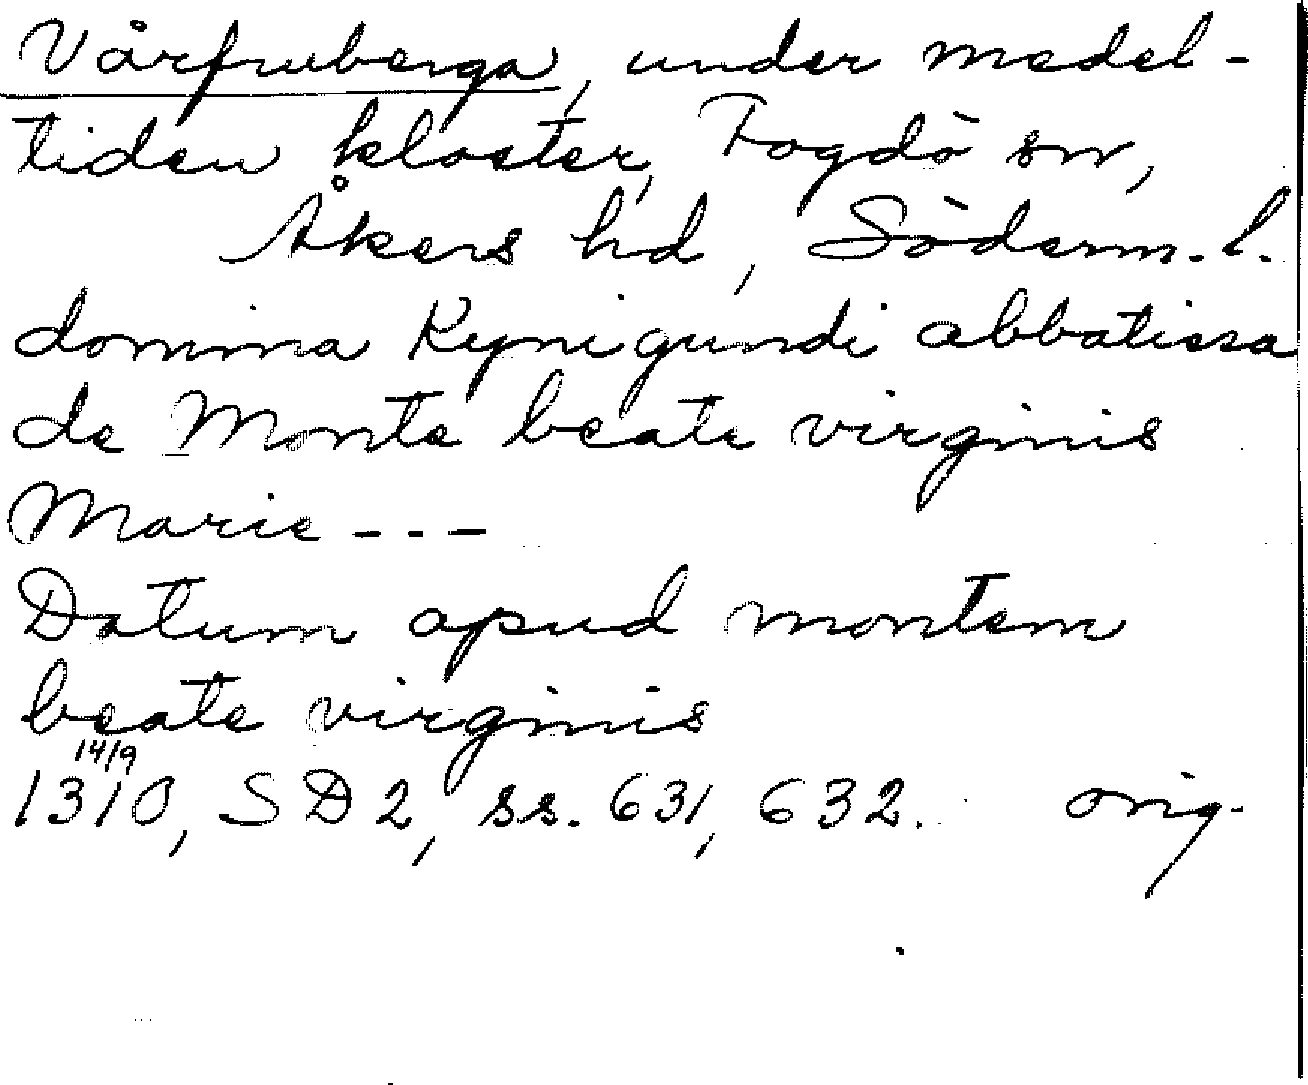 Vårfruberga, under medel-
tiden kloster, Fogdö sn,
Åkers hd, Söderm. l.
domina Kynigundi abbatissa
de Monte beate virginis
Marie - - -
Datum apud montem
beate virginis
14/9
1310, SD 2, ss. 631, 632. orig.